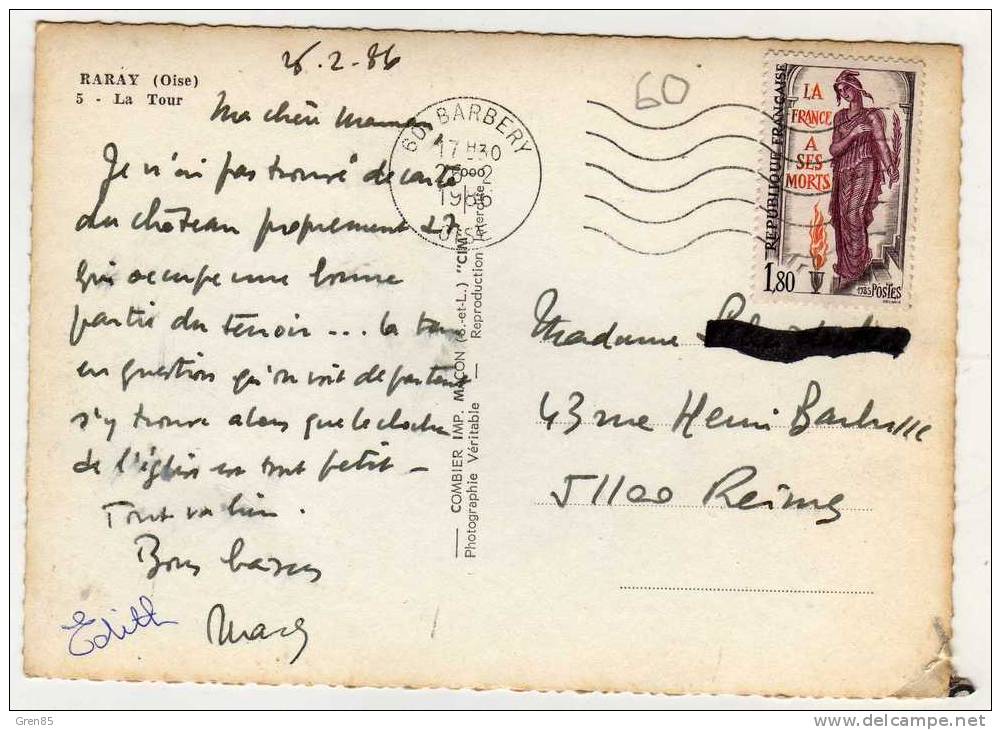 RARAY (Oise)
5 - La Tour
26.2-86
Ma chère maman,
Je n'ai pas trouvé de carte
du château proprement dit
qui occupe une bonne
partie du terroir... la tour
en question qu'on voit de partout
s'y trouve alors que le clocher
de l'église est tout petit -
Tout va bien.
Bons baisers
Edith
COMBIER IMP. MACON (S.-et-L.) "CIM"
Photographie Véritable — Reproduction Interdite
60 BARBERY
17 H30
1986
OISE
60
REPUBLIQUE FRANÇAISE
LA
FRANCE
A
SES
MORTS
1,80
1985 POSTES
Madame
43 rue Henri Barbusse
51100 Reims
Gren85
www.delcampe.net